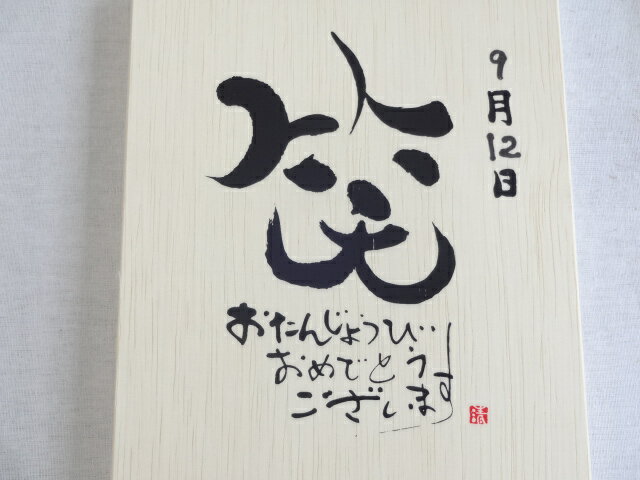 9月12日
笑
おたんじょうび
おめでとう
ございます